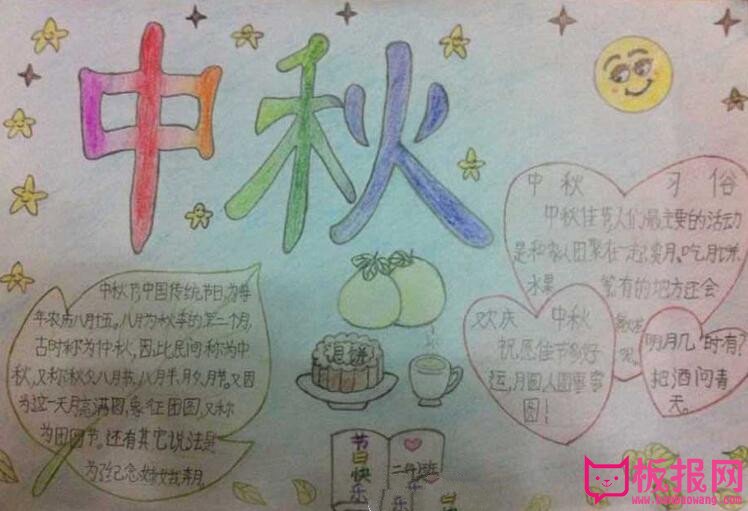 中秋
中秋 习俗
中秋佳节人们最主要的活动
是和家人团聚在一起,赏月、吃月饼、
水果 等有的地方还会
欢庆 中秋
祝愿佳节多好
运,月圆人圆事事
圆!
明月几时有?
把酒问青
天。
中秋节中国传统节日,为每
年农历八月十五。八月为秋季的第二个月,
古时称为仲秋,因此民间称为中
秋,又称秋夕、八月节、八月半、月夕、月节,又因
为这一天月亮满圆,象征团圆,又称
为团圆节。还有其它说法是
为了纪念嫦娥奔月
月饼
节日快乐
板报网
www.banbaowang.com